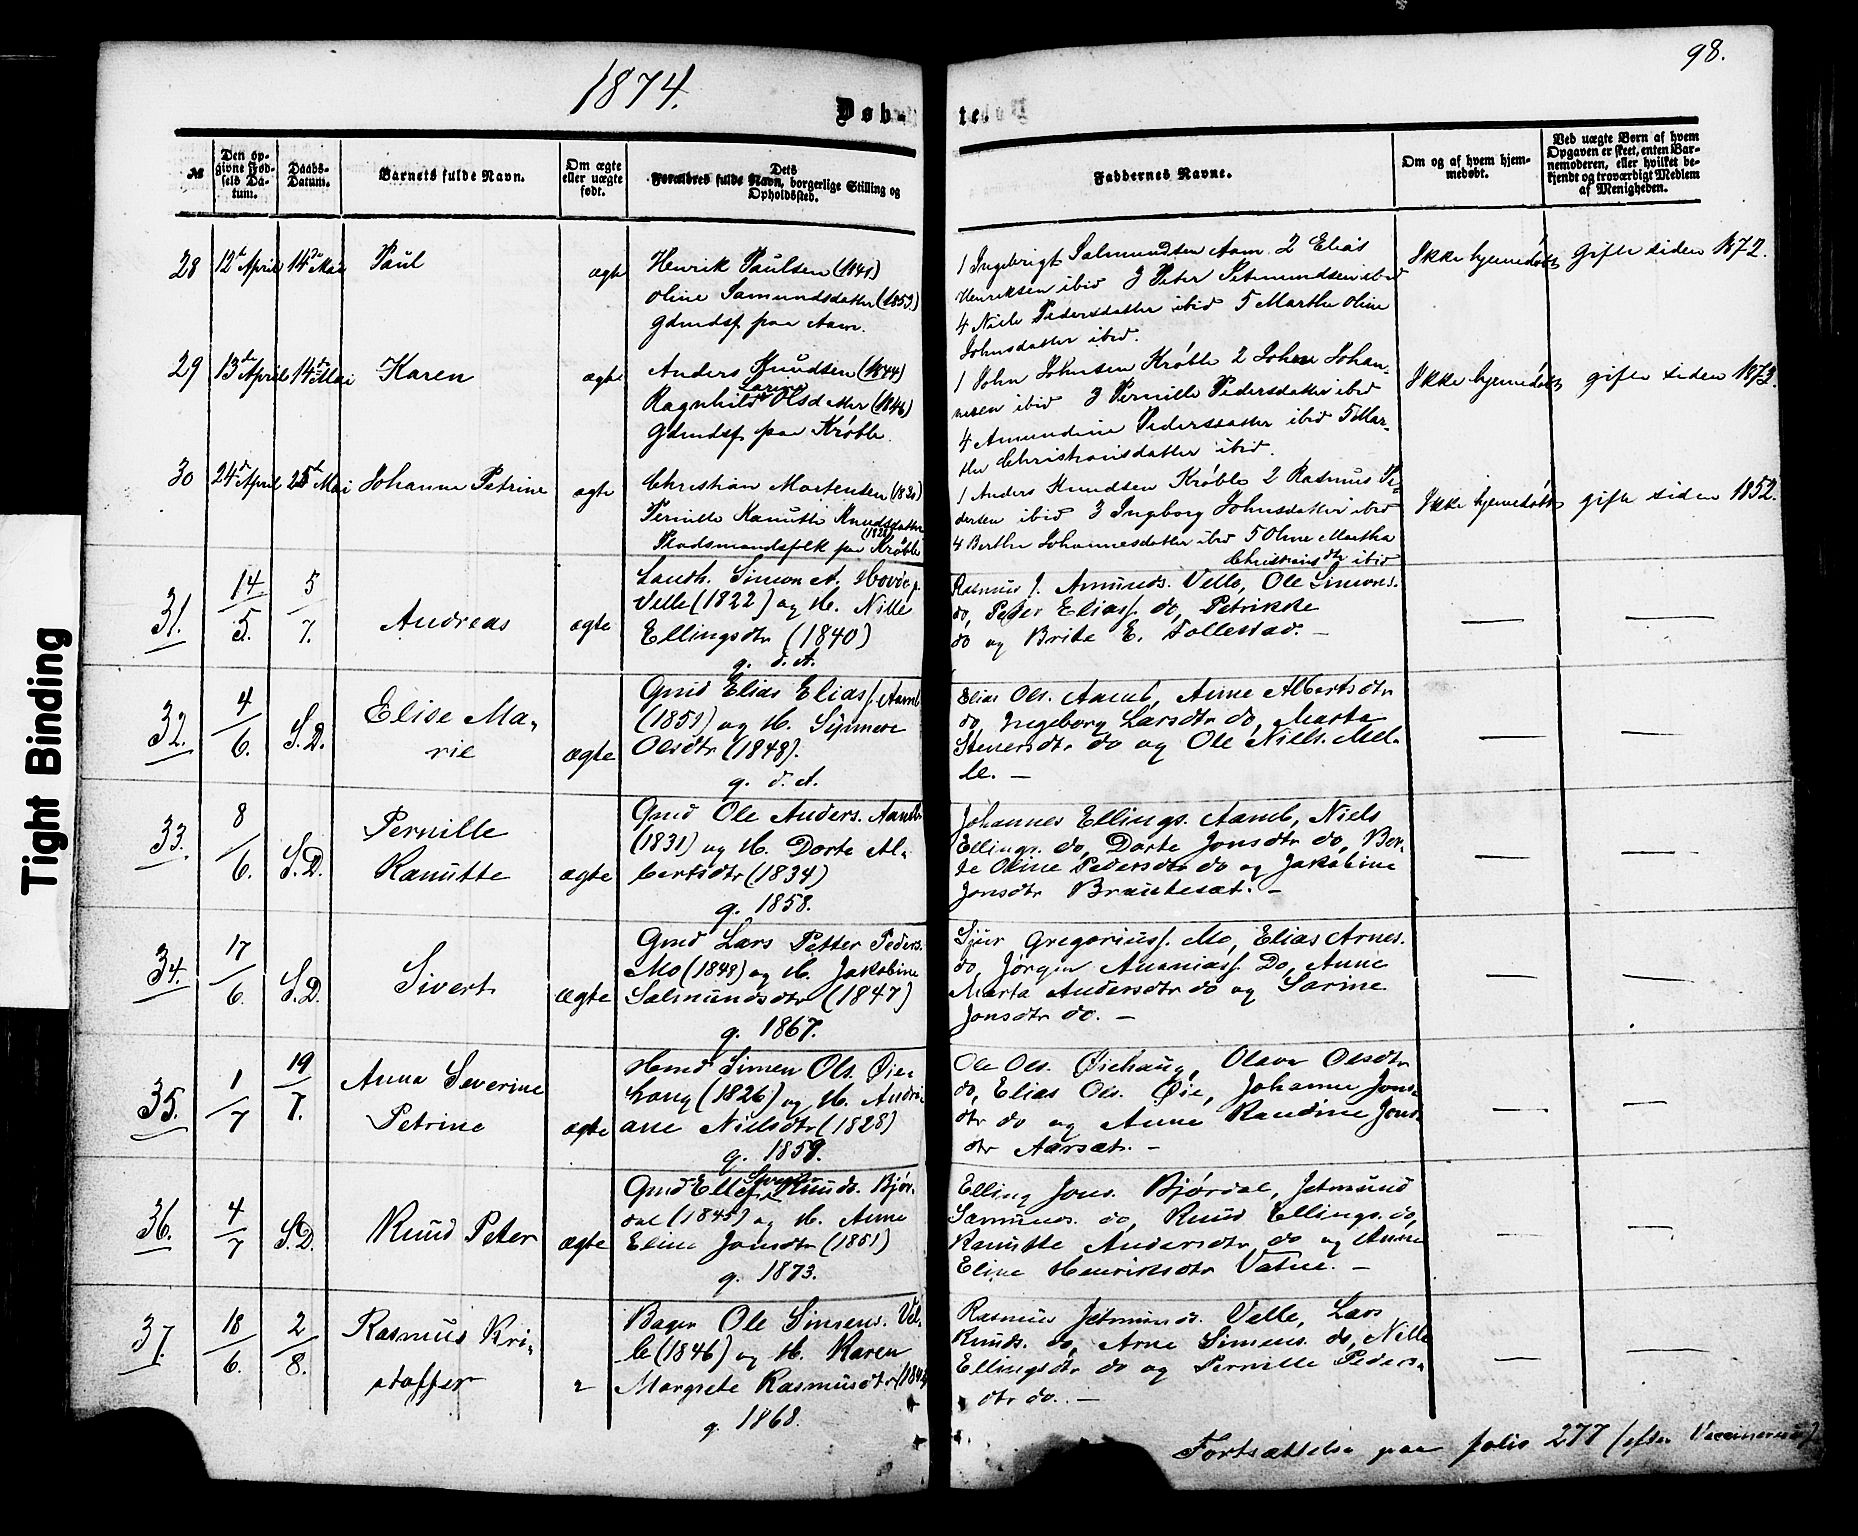 98.
1874.
Døb-
te
Tight Binding
№
Den op-
givne Fød-
sels Da-
tum.
Daabs-
Datum.
Barnets fulde Navn.
Om ægte
eller uægte
født.
Dets
Forældres fulde Navn, borgerlige Stilling og
Opholdssted.
Faddernes Navne.
Om og af hvem hjem-
medøbt.
Ved uægte Børn af hvem
Opgaven er skeet, enten Bar-
nemoderen, eller hvilket be-
kjendt og troværdigt Medlem
af Menigheden.
28
12te April
14de Mai
Paul
ægte
Henrik Paulsen
Oline Samundsdatter (1853)
Gdmdsf. paa Aam.
1 Ingebrigt Salmundsen Aam. 2 Elias
Henriksen ibid 3 Peter Jetmundsen ibid
4 Niels Pedersdatter ibid 5 Marthe Oline
Johnsdatter ibid.
Ikke hjemmedøbt
gifte siden 1872.
29
13de April
14de Mai
Karen
ægte
Anders Knudsen (1844)
Ragnhild Larine Olsdatter (1846)
Gdmdsf. paa Krøble.
1 John Johnsen Krøble 2 Johan Johan-
nesen ibid 3 Pernille Pedersdatter ibid
4 Amundine Pedersdatter ibid 5 Mar-
the Christiansdatter ibid.
Ikke hjemmedøbt
gifte siden 1873.
30
24de April
25de Mai
Johanne Petrine
ægte
Christian Mortensen (1830)
Pernille Kanutte Knudsdatter
(1828)
Pladsmandsfolk paa Krøble
1 Anders Knudsen Krøble 2 Rasmus Pe-
dersen ibid 3 Ingeborg Johnsdatter ibid
4 Berthe Johannesdatter ibid 5 Oline Martha
Christiansdtr ibid
Ikke hjemmedøbt
gifte siden 1852.
31.
14/5.
5/7.
Andreas
ægte
Landh. Simon A. Hovde p.
Velle (1822) og H. Nille
Ellingsdtr (1840)
g. d. A.
Rasmus J. Amunds. Velle, Ole Simons.
do, Peder Eliass. do, Petrikke
do og Brite E. Follestad. —
32.
4/6.
S.D.
Elise Ma-
rie
ægte
Gmd Elias Eliass. Aamb
(1851) og H. Synneve
Olsdtr (1848).
g. d. A.
Elias Ols. Aamb, Anne Albertsdtr
do, Ingeborg Larsdtr do, Marta
Steuersdtr do og Ole Niels. Mel-
le. —
33.
8/6.
S.D.
Pernille
Kanutte
ægte
Gmd Ole Anders. Aamb
(1831) og H. Dorte Al-
bertsdtr (1834)
g. 1858.
Johannes Ellings. Aamb, Niels
Ellings. do, Dorte Jonsdtr do, Ber-
te Oline Pedersdtr do og Jakobine
Jonsdtr Brautesæt. —
34.
17/6.
S.D.
Sivert
ægte
Gmd Lars Petter Peders.
Mo (1848) og H. Jakobine
Salmundsdtr (1847)
g. 1867.
Sjur Gregoriuss. Mo, Elias Arnes.
do, Jørgen Ananiass. Do, Anne
Marta Andersdtr do og Sarine
Jonsdtr do. —
35.
1/7
19/7.
Anna Severine
Petrine
ægte
Hmd Simen Ols. Øie-
haug (1826) og H. Andri-
ane Nielsdtr (1828)
g. 1859.
Ole Ols. Øiehaug, Olave Olsdtr
do, Elias Ols. Øie, Johanne Jons-
dtr do og Anne Randine Jons-
dtr Aarsæt. —
36.
4/7
S.D.
Knud Peter
ægte
Gmd Ellef Sivert Knuds. Bjør-
dal (1845) og H. Anne
Eline Jonsdtr (1851)
g. 1873.
Elling Jons. Bjørdal, Jetmund
Samunds. do, Knud Ellings. do,
Kanutte Andersdtr do og Anne
Eline Henriksdtr Vatne. —
37.
18/6.
2/8.
Rasmus Kri-
stoffer
Bager Ole Simens. Vel-
le (1846) og H. Karen
Margrete Rasmusdtr
g. 1868.
Rasmus Jetmunds. Velle, Lars
Knuds. do, Arne Simens. do, Nille
Ellingsdtr do og Pernille Peders-
dtr do. —
Fortsættelse paa folio 277 (efter Vaccinerede)